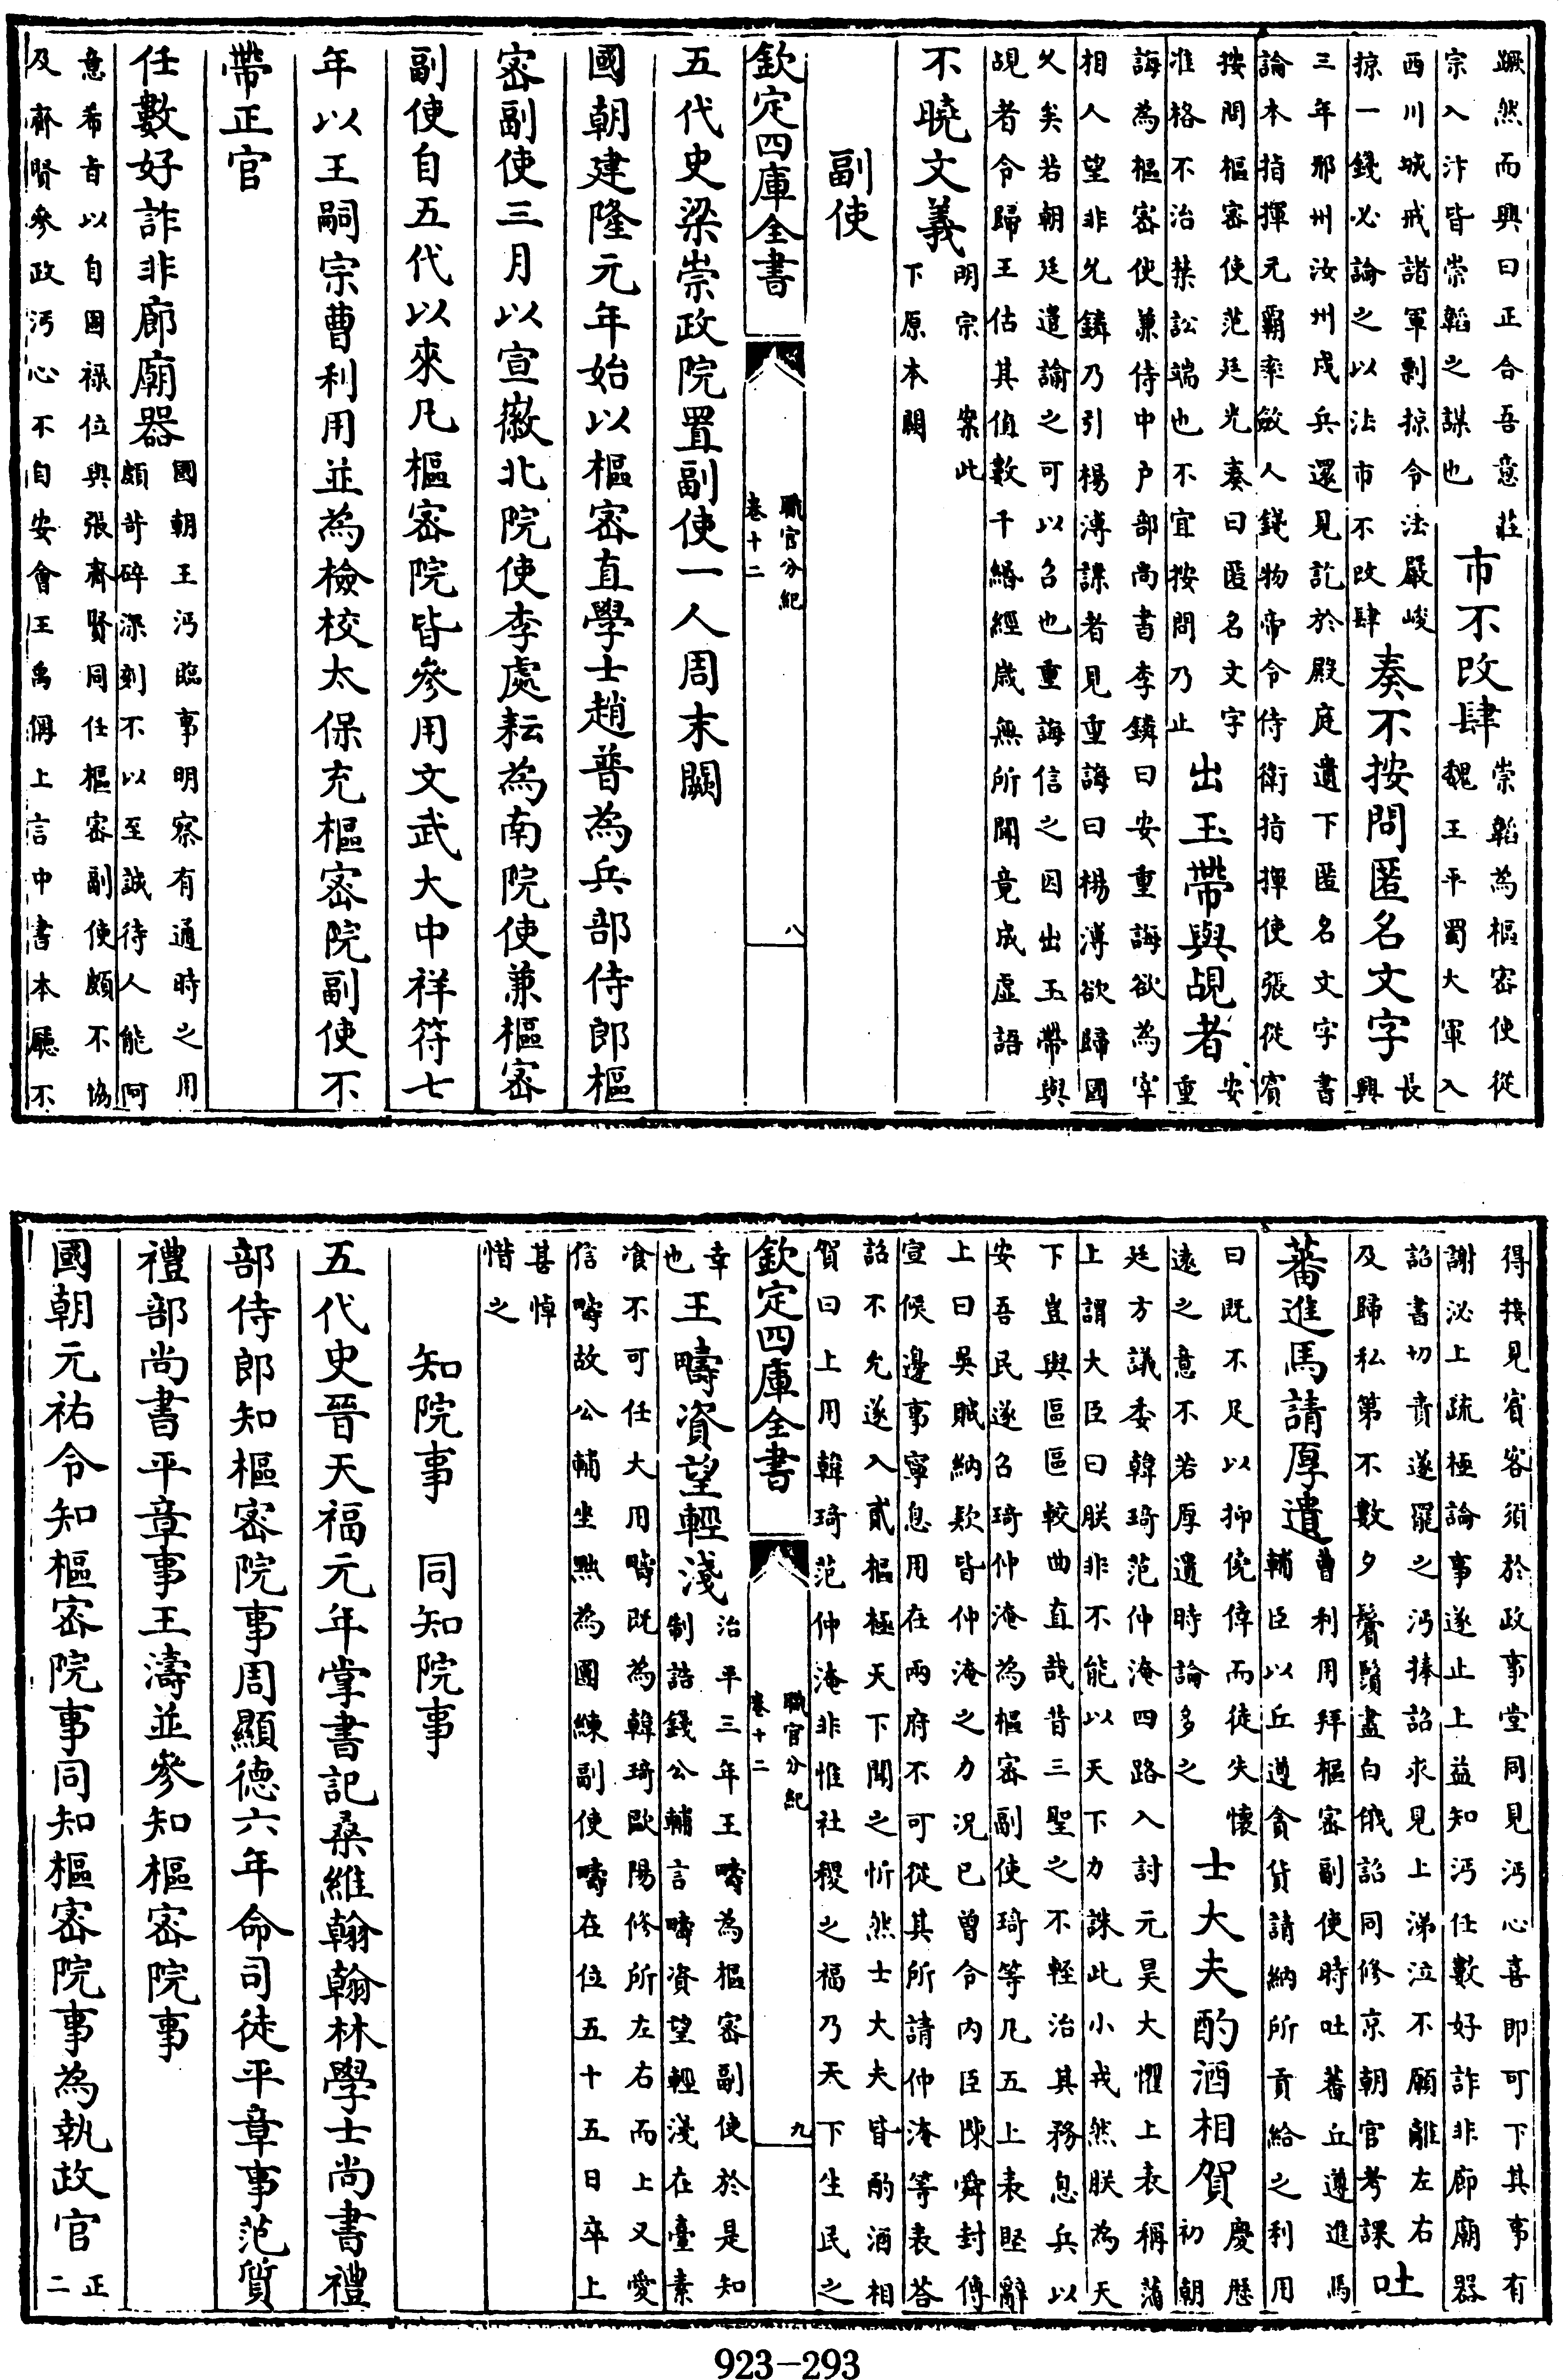 蹶然而興曰正合吾意莊
宗入汴皆崇韜之謀也
市不改肆
崇韜為樞密使從
魏王平蜀大軍入
西川城戒諸軍剽掠令法嚴峻
掠一錢必論之以法市不改肆
奏不按問匿名文字
長
興
三年邢州汝州戍兵還見訖於殿庭遺下匿名文字書
論本指揮元霸率斂人錢物帝令侍衛指揮使張從賓
按問樞密使范延光奏曰匿名文字
准格不治禁訟端也不宜按問乃止
出玉帶與覘者
安
重
誨為樞密使兼侍中户部尚書李鏻曰安重誨欲為宰
相人望非允鏻乃引楊溥諜者見重誨曰楊溥欲歸國
乆矣若朝廷遣諭之可以召也重誨信之因出玉帶與
覘者令歸王估其值數千緡經歲無所聞竟成虛語
不曉文義
明宗 案此
下原本闕
副使
欽定四庫全書
職官分紀
卷十二
八
五代史梁崇政院置副使一人周末闕
國朝建隆元年始以樞密直學士趙普為兵部侍郎樞
密副使三月以宣徽北院使李處耘為南院使兼樞密
副使自五代以來凡樞密院皆參用文武大中祥符七
年以王嗣宗曹利用並為檢校太保充樞密院副使不
帶正官
任數好詐非廊廟器
國朝王沔臨事明察有適時之用
頗訐碎深刻不以至誠待人能阿
意希旨以自固祿位與張齊賢同任樞密副使頗不協
及齊賢參政沔心不自安會王禹偁上言中書本廳不
得接見賓客須於政事堂同見沔心喜即可下其事有
謝泌上疏極論事遂止上益知沔任數好詐非廊廟器
詔書切責遂罷之沔捧詔求見上涕泣不願離左右
及歸私第不數夕鬢鬚盡白俄詔同修京朝官考課
吐
蕃進馬請厚遺
曹利用拜樞密副使時吐蕃丘遵進馬
輔臣以丘遵貪貨請納所貢給之利用
曰既不足以抑僥倖而徒失懷
遠之意不若厚遺時論多之
士大夫酌酒相賀
慶歷
初朝
廷方議委韓琦范仲淹四路入討元昊大懼上表稱藩
上謂大臣曰朕非不能以天下力誅此小戎然朕為天
下豈與區區較曲直哉昔三聖之不輕治其務息兵以
安吾民遂召琦仲淹為樞密副使琦等凡五上表堅辭
上曰吳賊納欵皆仲淹之力況已曾令內臣陳舜封傳
宣候邊事寧息用在兩府不可從其所請仲淹等表荅
詔不允遂入貳樞極天下聞之忻然士大夫皆酌酒相
賀曰上用韓琦范仲淹非惟社稷之福乃天下生民之
欽定四庫全書
職官分紀
卷十二
九
幸
也
王疇資望輕淺
治平三年王疇為樞密副使於是知
制誥錢公輔言疇資望輕淺在臺素
飡不可任大用疇既為韓琦歐陽修所左右而上又愛
信疇故公輔坐黜為團練副使疇在位五十五日卒上
甚悼
惜之
知院事 同知院事
五代史晉天福元年掌書記桑維翰翰林學士尚書禮
部侍郎知樞密院事周顯德六年命司徒平章事范質
禮部尚書平章事王溥並參知樞密院事
國朝元祐令知樞密院事同知樞密院事為執政官
正
二
923-293